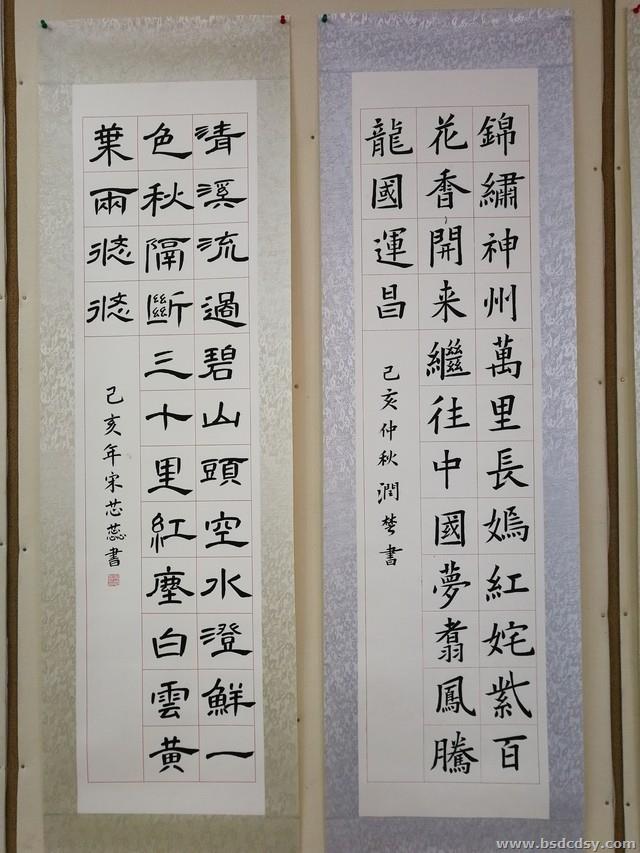 錦繡神州萬里長嫣紅姹紫百
花香開来繼往中國夢翥鳳騰
龍國運昌
己亥仲秋潤楚書
清溪流過碧山頭空水澄鮮一
色秋隔斷三十里紅塵白雲黃
葉兩悠悠
己亥年宋芯蕊書
www.bsdcdsy.com